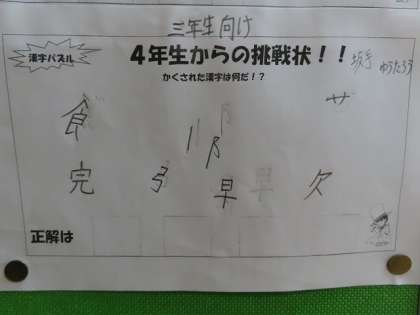 三年生向け
漢字パズル
4年生からの挑戦状!!
坂手 ゆうたろう
かくされた漢字は何だ!?
食 リ 阝 艹
完 弓 早 欠
正解は